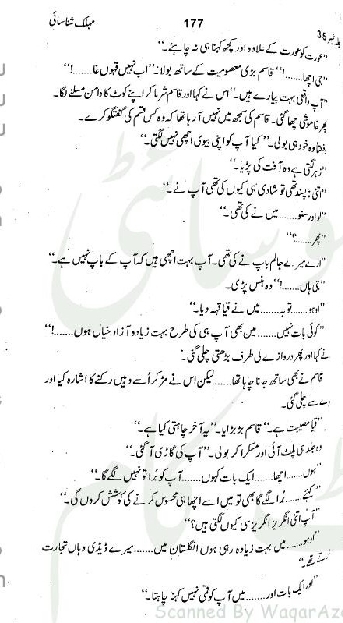 مہلک شناسائی 177 جلد نمبر 36
"عورت کو عورت کے علاوہ اور کچھ کہنا ہی نہ چاہئے۔"
"جی اچھا......!" قاسم بڑی معصومیت کے ساتھ بولا۔ "اب نہیں قہوں غا......!"
"آپ واقعی بہت پیارے ہیں۔" اس نے کہا اور قاسم شرما کر اپنے کوٹ کا دامن مسلنے لگا۔
پھر خاموشی چھا گئی۔ قاسم کی سمجھ میں نہیں آ رہا تھا کہ وہ کس قسم کی گفتگو کرے۔
دفعتاً وہ خود ہی بولی۔ "کیا آپ کو اپنی بیوی اچھی نہیں لگتی۔"
"زہر لگتی ہے وہ آفت کی پڑیا۔"
"اتنی ناپسند تھی تو شادی ہی کیوں کی تھی آپ نے۔"
"اور سنو...... میں نے کی تھی۔"
"پھر......؟"
"ارے میرے جالم باپ نے کی تھی۔ آپ بہت اچھی ہیں کہ آپ کے باپ نہیں ہے۔"
"جی ہاں......!" وہ ہنس پڑی۔
"اوہو...... توبہ...... میں نے قیا قہہ دیا۔"
"کوئی بات نہیں...... میں بھی آپ ہی کی طرح بہت زیادہ آزاد خیال ہوں......!"
نے کہا اور پھر دروازے کی طرف بڑھتی چلی گئی۔
قاسم نے بھی ساتھ جانا چاہا تھا...... لیکن اس نے مڑ کر اُسے وہیں رکنے کا اشارہ کیا اور
سے چلی گئی۔
"قیا مصیبت ہے۔" قاسم بڑبڑایا۔ "یہ آخر چاہتی کیا ہے۔"
وہ جلد ہی پلٹ آئی اور مسکرا کر بولی۔ "آپ کی گاڑی آ گئی۔"
"ہوں...... اچھا...... ایک بات کہوں...... آپ کو بُرا تو نہیں لگے گا۔"
"کہیئے...... بُرا لگے گا بھی تو میں اسے اچھا ہی محسوس کرنے کی کوشش کروں گی۔"
"آپ اتنی انگریز انگریزی کیوں لگتی ہیں؟"
"اوہو...... میں بہت زیادہ رہی ہوں انگلستان میں...... میرے ڈیڈی وہاں تجارت
تھے۔"
"اور ایک بات اور...... میں آپ کو فنی نہیں کہنا چاہتا۔"
Scanned By WaqarAze